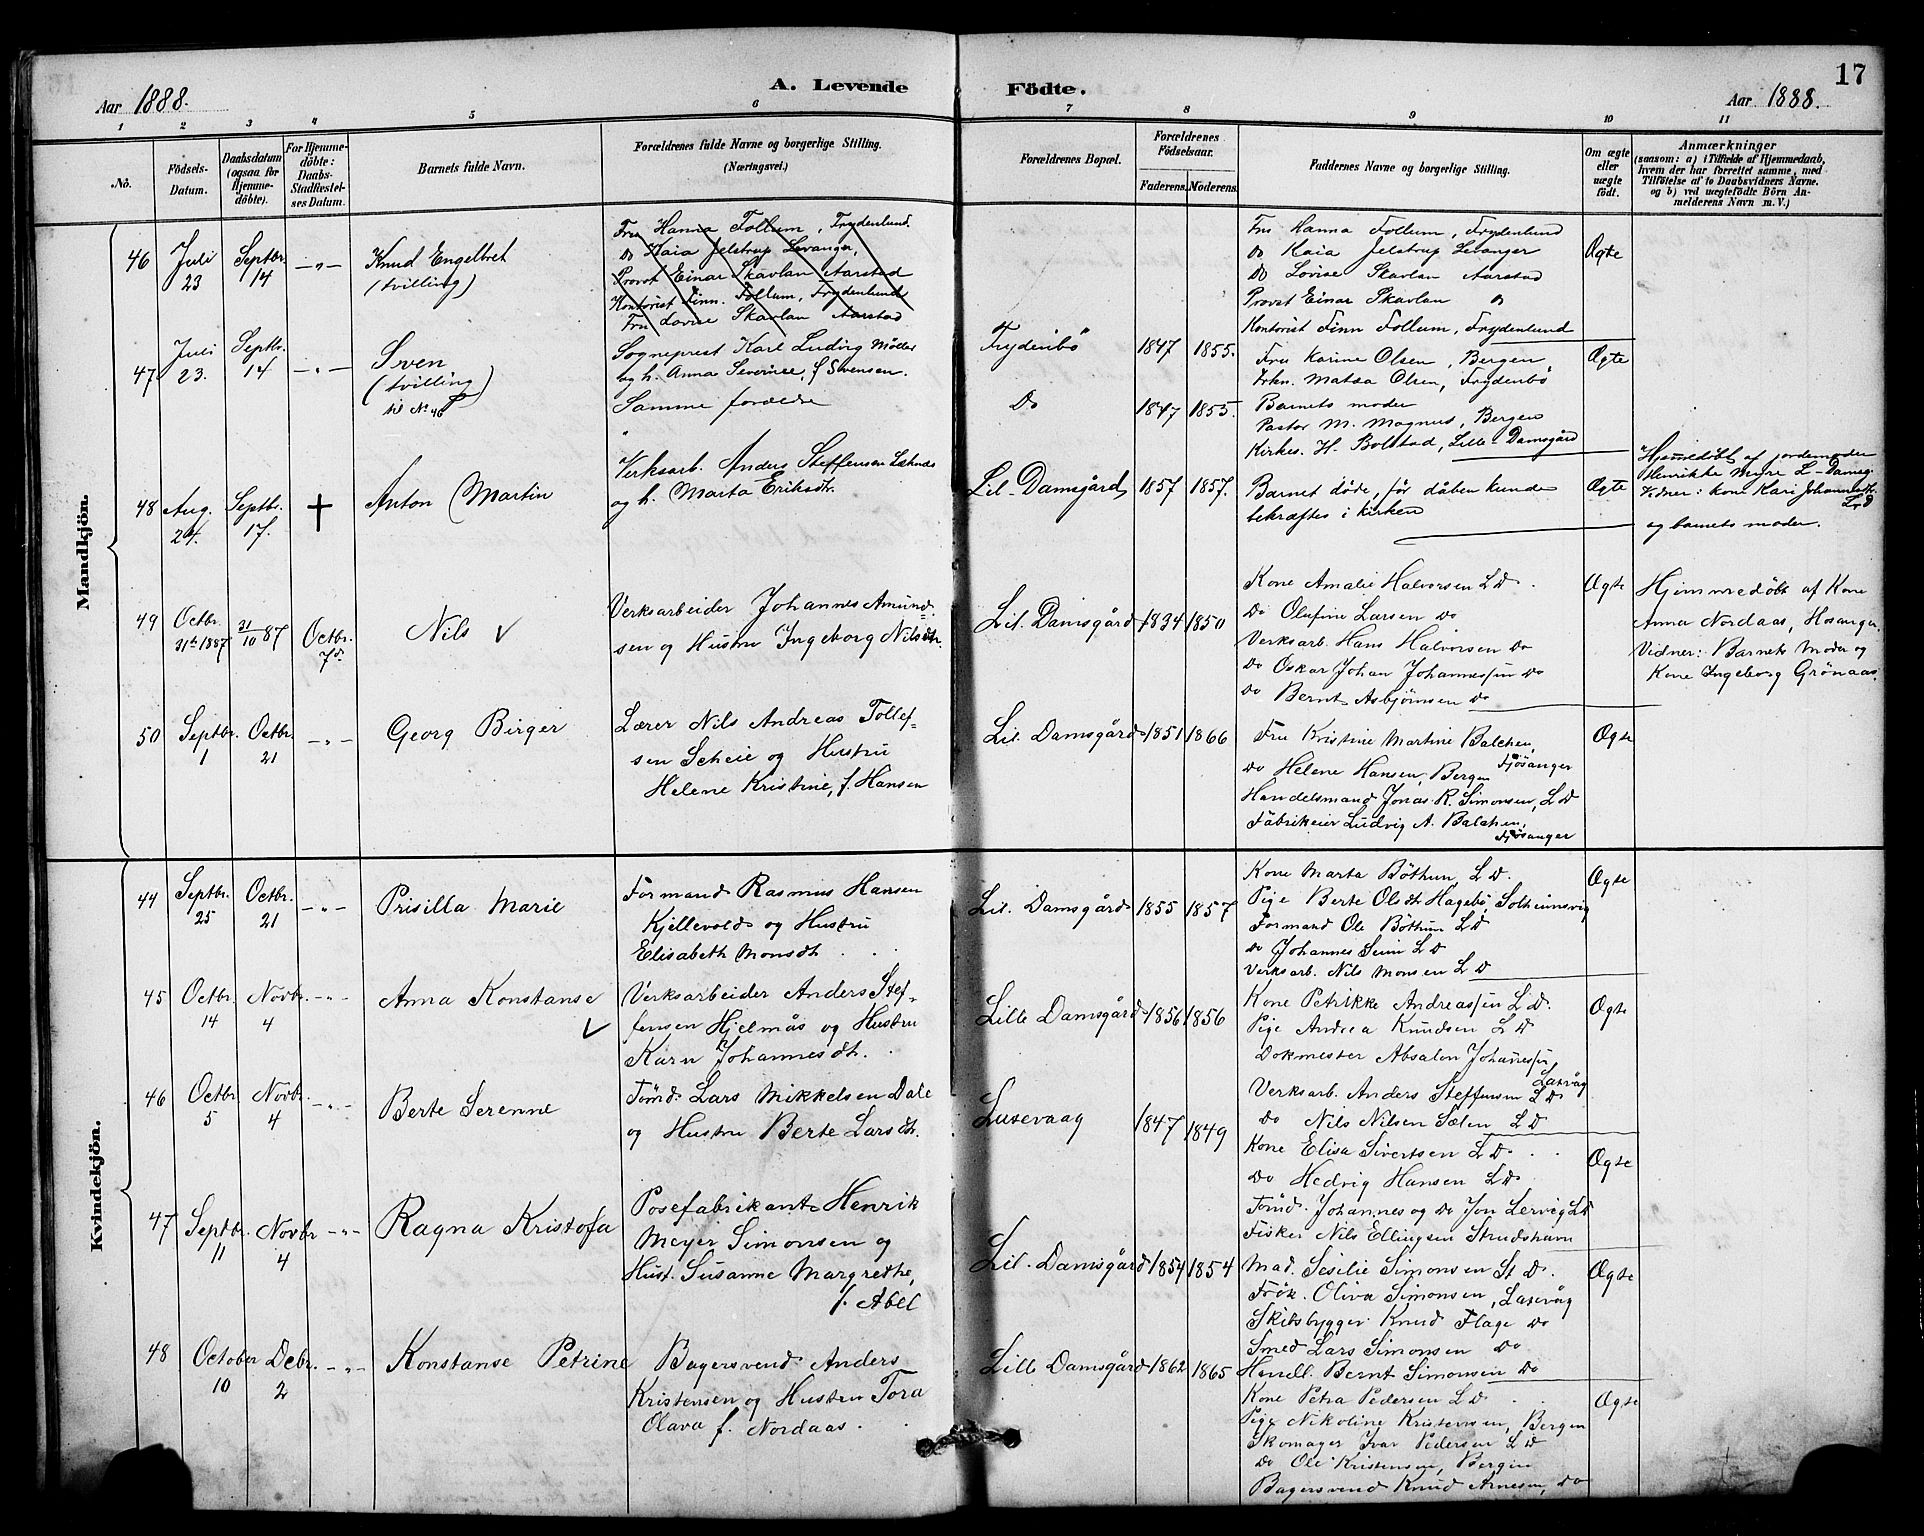 17
Aar 1888.
A. Levende Födte.
Aar 1888.
1 2 3 4 5 6 7 8 9 10 11
No.
Födsels-
Datum.
Daabsdatum
(ogsaa for
Hjemme-
döbte).
For Hjemme-
döbte:
Daabs-
Stadfæstel-
ses Datum.
Barnets fulde Navn.
Forældrenes fulde Navne og borgerlige Stilling.
(Næringsvei.)
Forældrenes Bopæl.
Forældrenes
Födselsaar.
Faderens. Moderens.
Faddernes Navne og borgerlige Stilling.
Om ægte
eller
uægte
födt.
Anmærkninger
(saasom: a) i Tilfælde af Hjemmedaab,
hvem der har forrettet samme, med
Tilföielse af to Daabsvidners Navne.
og b) ved uægtefödte Börn An-
melderens Navn m. V.)
Mandkjön.
46
Juli
23
Septbr.
14
-„-
Knud Engelbret
(tvilling)
Fru Hanna Follum, Frydenlund.
Do Kaia Jelstrup Levanger,
Provst Einar Skavlan Aarstad
Kontorist Finn Follum, Frydenlund
Fru Lovise Skavlan Aarstad
Sogneprest Karl Ludvig Möller
og h. Anna Severine, f Svensen.
Frydenbö
1847 1855.
Fru Hanna Follum, Frydenlund
Do Kaia Jelstrup Levanger
Do Lovise Skavlan Aarstad
Provst Einar Skavlan Do
Kontorist Finn Follum, Frydenlund
Ægte
47
Juli
23.
Septbr.
14
-„-
Sven
(tvilling
til No 46)
Samme forældre
Do
1847 1855.
Fru Karine Olsen, Bergen
Frkn. Matsa Olsen, Frydenbö
Barnets moder
Pastor M. Magnus, Bergen
Kirkes. H. Bolstad, Lille-Damsgård
Ægte
48
Aug.
24.
Septbr.
17.
+
Anton Martin
Verksarb. Anders Steffensen
og h. Marta Eriksdtr.
Lil-Damsgård
1857 1857.
Barnet döde, för dåben kunde
bekræftes i kirken
Ægte
Hjemmedöbt af jordemoder
Henrikke Myre L-Damsg.
Vidner: kone Kari Johannesdtr.
LD
og barnets moder.
49
Octbr.
31te 1887
31/10 87
Octbr.
7de
Nils
Verksarbeider Johannes Amund=
sen og Hustru Ingeborg Nilsdtr.
Lil. Damsgård
1834 1850
Kone Amalie Halvorsen LD.
Do Olufine Larsen Do
Verksarb. Hans Halvorsen Do
Do Oskar Johan Johannessen Do
Do Bernt Asbjörnsen Do
Ægte
Hjemmedöbt af Kone
Anna Nordaas, Hosanger.
Vidner: Barnets Moder og
Kone Ingeborg Grönaas.
50
Septbr.
1
Octbr.
21
-„-
Georg Birger
Lærer Nils Andreas Tollef=
sen Scheie og Hustru
Helene Kristine, f. Hansen
Lil. Damsgård
1851 1866
Fru Kristine Martine Balchen,
Fjösanger
Do Helene Hansen, Bergen
Handelsmand Jonas R. Simonsen, LD
Fabrikeier Ludvig A. Balchen,
Fjösanger
Ægte
Kvindekjön.
44
Septbr.
25
Octbr.
21
-„-
Prisilla Marie
Formand Rasmus Hansen
Kjellevold og Hustru
Elisabeth Monsdtr.
Lil. Damsgård
1855 1857
Kone Marta Böthun, LD.
Pige Berte Olsdtr Hagebö, Solheimsvig
Formand Ole Böthun LD
Do Johannes Seim LD
Verksarb. Nils Monsen LD
Ægte
45
Octbr.
14
Novbr.
4
-„-
Anna Konstanse
Verksarbeider Anders Stef=
fensen Hjelmås og Hustru
Kari Johannesdtr.
Lille Damsgård
1856 1856
Kone Petrikke Andreassen LD.
Pige Andrea Knudsen LD
Dokmester Absalon Johannessen
Laxevåg
Verksarb. Anders Steffensen LD.
Do Nils Nilsen Sælen LD
Ægte
46
Octbr.
5
Novbr.
4
-„-
Berte Serenne
Tömd. Lars Mikkelsen Dale
og Hustru Berte Larsdtr.
Laxevaag
1847 1849
Kone Elisa Sivertsen LD.
Do Hedvig Hansen LD.
Tömd. Johannes og Do Jon Lervig LD
Fisker Nils Ellingsen Strudshavn
Ægte
47
Septbr.
11
Novbr.
4
-„-
Ragna Kristofa
Posefabrikant Henrik
Meyer Simonsen og
Hust. Susanne Margrethe,
f. Abel
Lil. Damsgård
1854 1854
Mad. Sesilie Simonsen St D.
Frök. Oliva Simonsen, Laxevåg
Skibsbygger Knud Flage Do
Smed Lars Simonsen Do
Handl. Bernt Simonsen Do
Ægte
48
October
10
Debr.
2
-„-
Konstanse Petrine
Bagersvend Anders
Kristensen og Hustru Tora
Olava f. Nordaas.
Lille Damsgård
1862 1865
Kone Petra Pedersen LD.
Pige Nikoline Kristensen, Bergen
Skomager Ivar Pedersen LD
Do Ole Kristensen, Bergen
Bagersvend Knud Arnesen, Do
Ægte